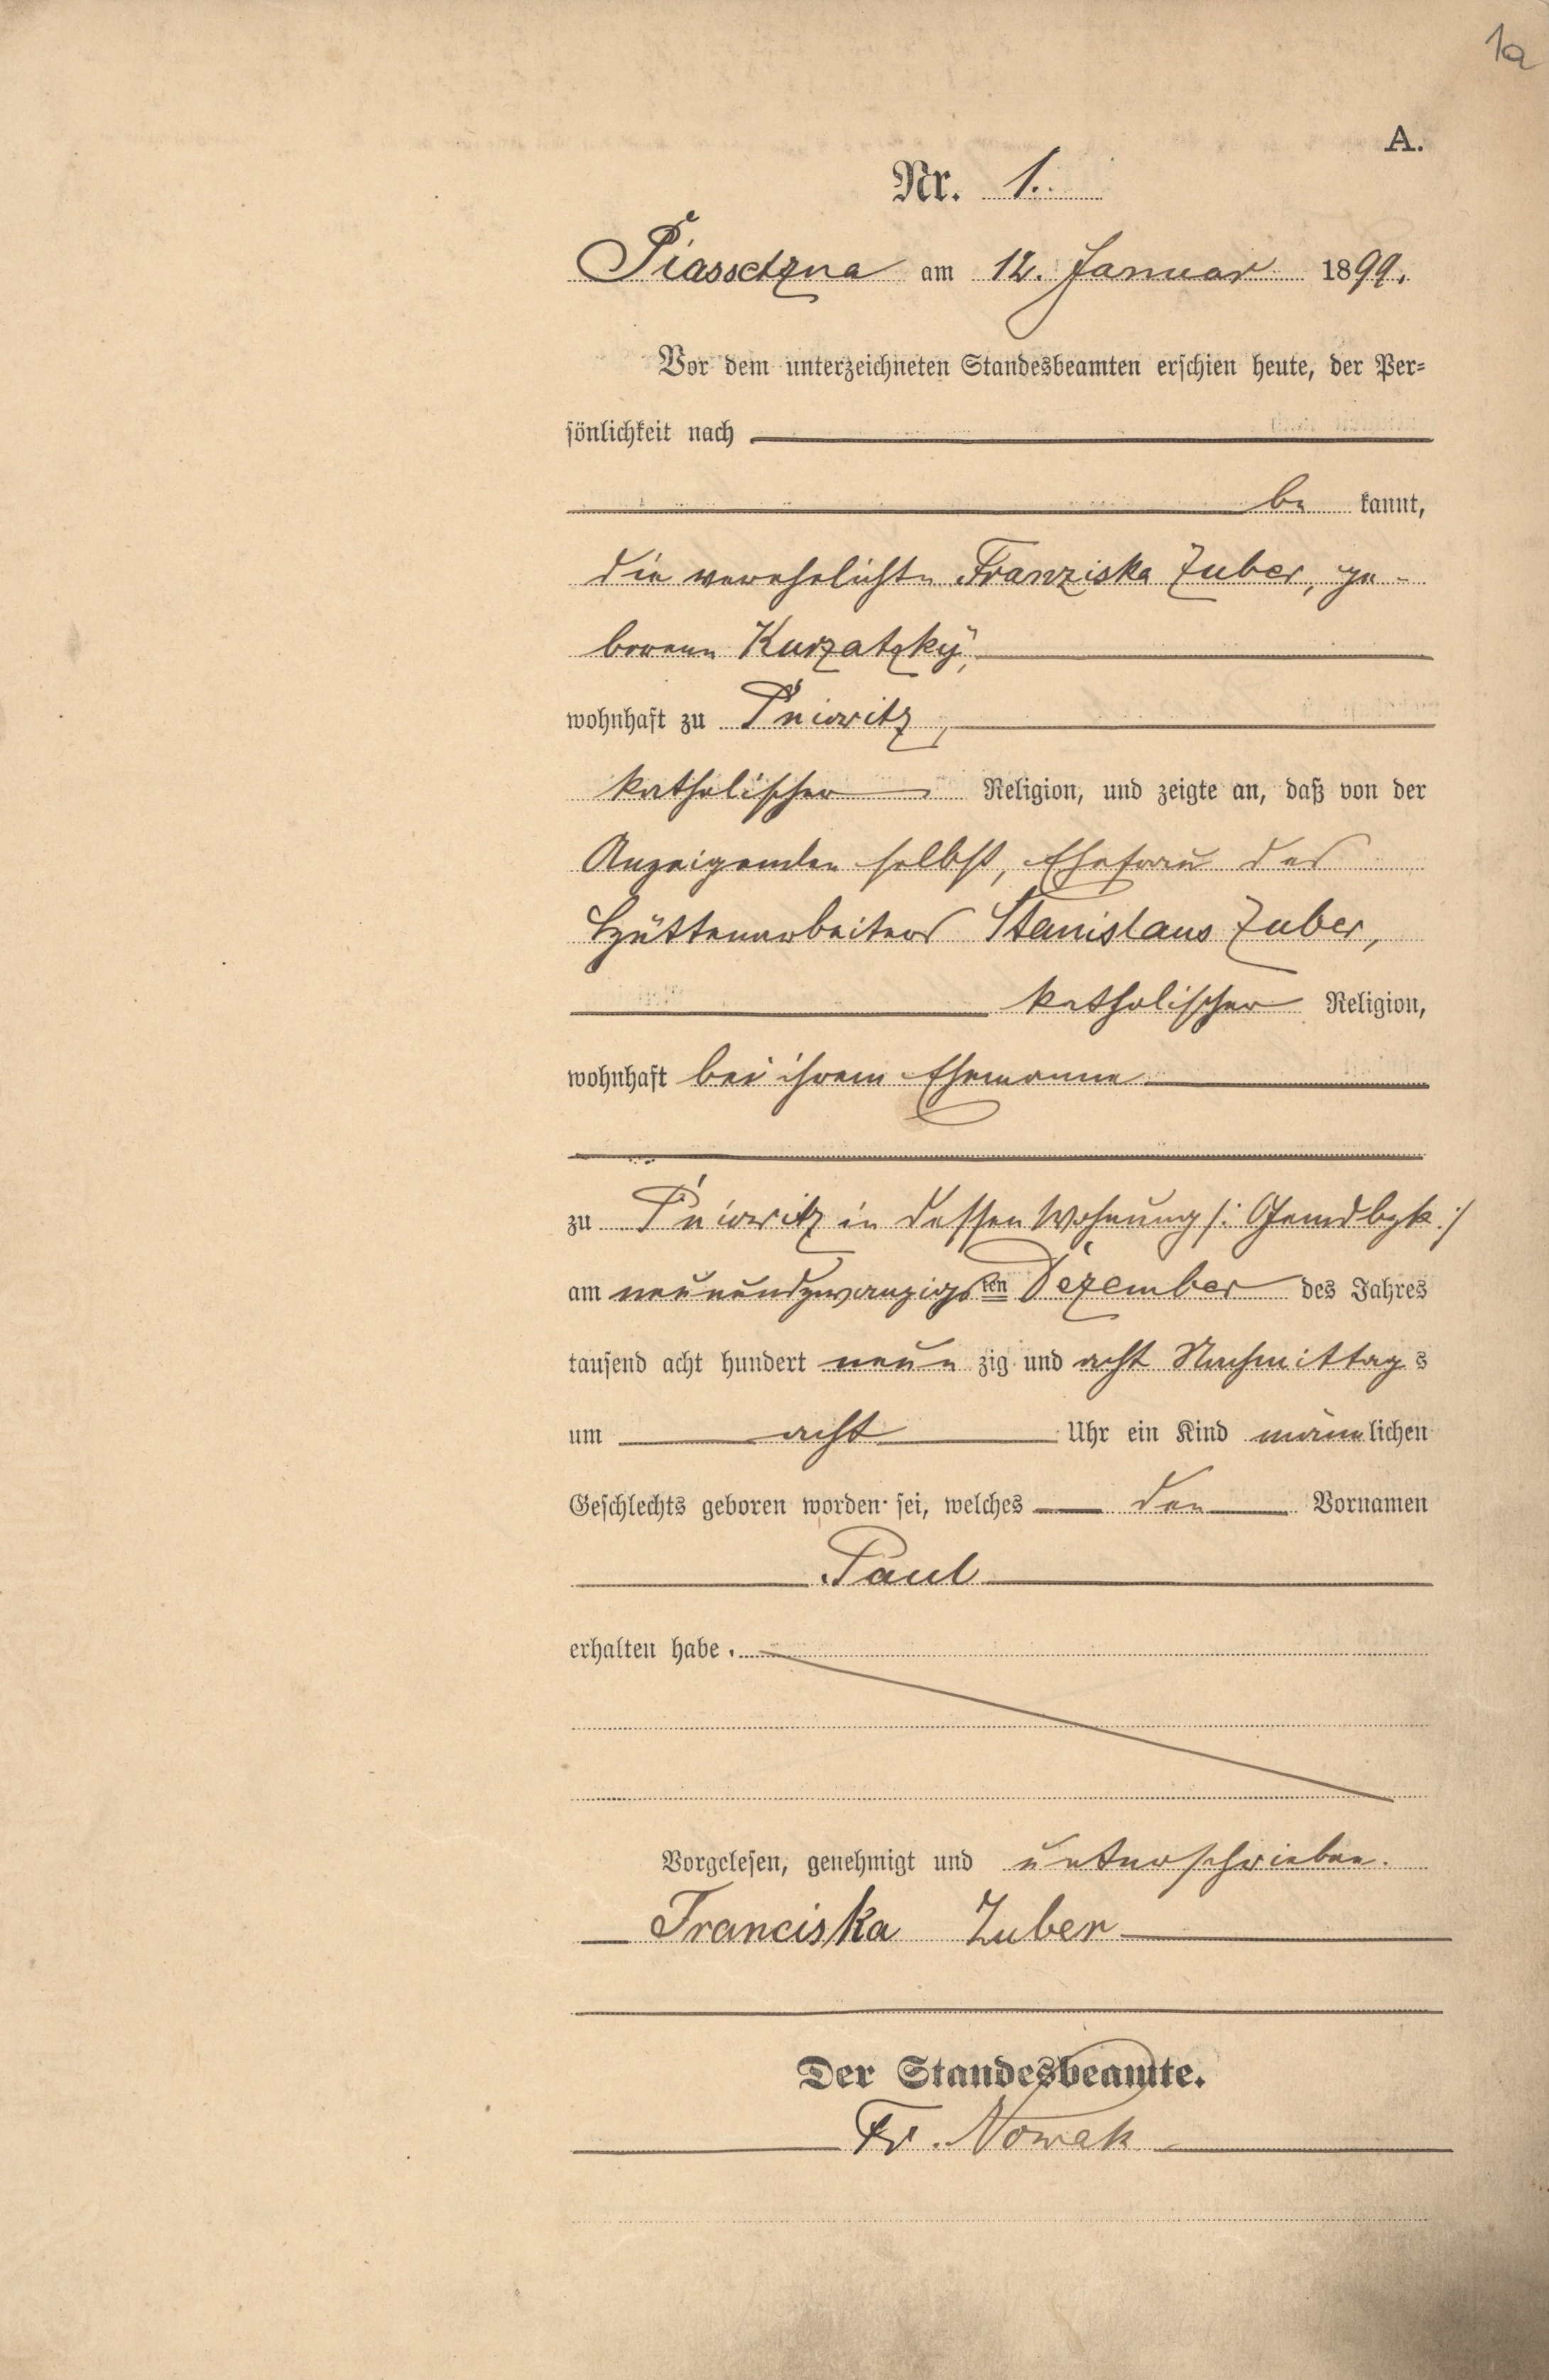 1a
A.
Nr. 1.
Piassetzna am 12. Januar 1899.
Vor dem unterzeichneten Standesbeamten erschien heute, der Per-
sönlichkeit nach
be kannt,
die verehelichte Franziska Zuber, ge-
borene Kurzatzky,
wohnhaft zu Pniowitz,
katholischer Religion, und zeigte an, daß von der
Anzeigenden selbst, Ehefrau des
Hüttenarbeiters Stanislaus Zuber,
katholischer Religion,
wohnhaft bei ihrem Ehemanne
zu Pniowitz in dessen Wohnung /: Gemdbzk :/
am neunundzwanzigsten Dezember des Jahres
tausend acht hundert neun zig und acht Nachmittags
um acht Uhr ein Kind männlichen
Geschlechts geboren worden sei, welches den Vornamen
Paul
erhalten habe.
Vorgelesen, genehmigt und unterschrieben.
Franciska Zuber
Der Standesbeamte.
Fr. Nowak